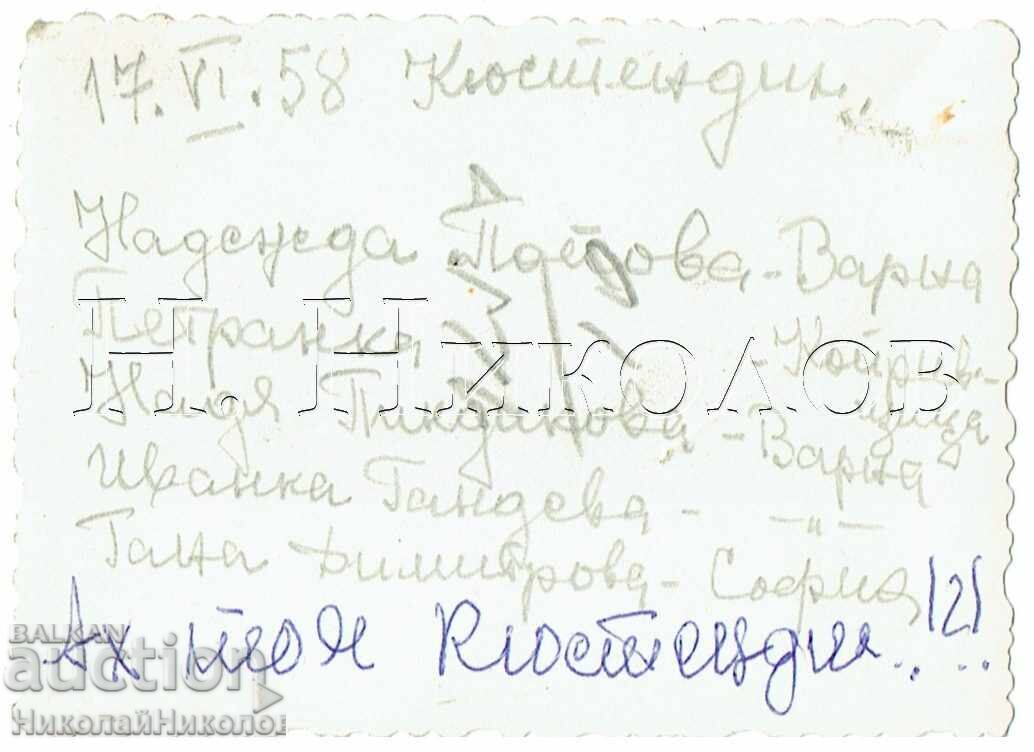 17.VI.58 Кюстендил
Надежда Пайдова - Варна
Петранка - Коприв-
щица
Надя - Варна
Иванка Гандева - -"-
Гана Димитрова - София
Ах тоя Кюстендил..!?!..
Н. НИКОЛОВ
BALKAN
auction
НиколайНиколов